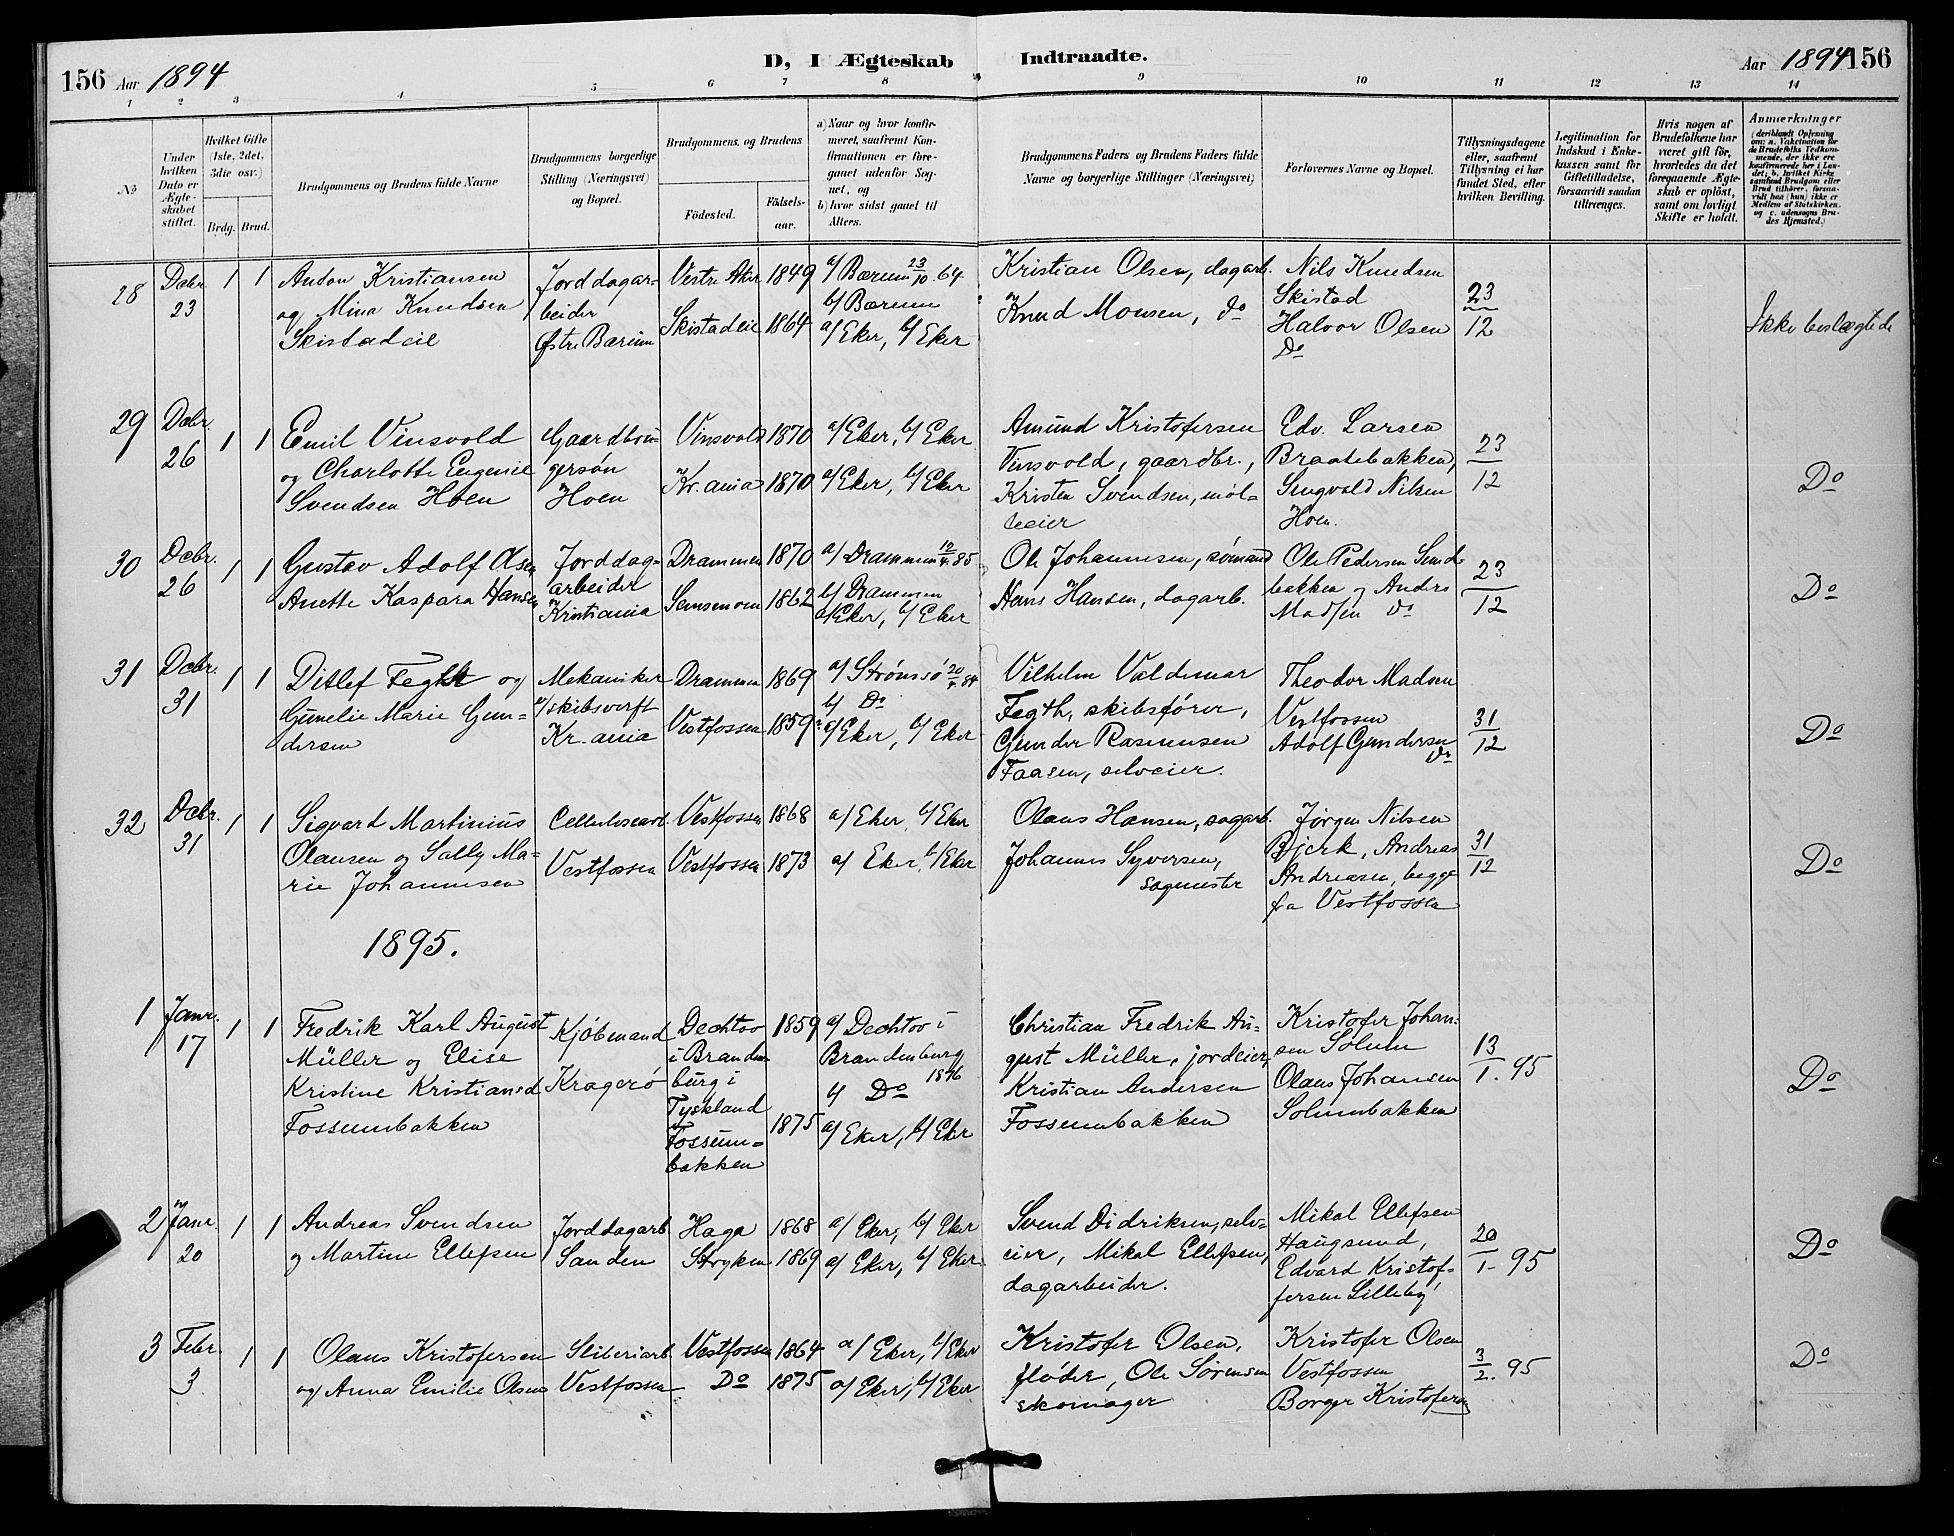 156 Aar 1894 D, I Ægteskab Indtraadte. Aar 1894 156
1 2 3 4 5 6 7 8 9 10 11 12 13 14
No
Under hvilken Dato er Ægteskabet stiftet.
Hvilket Gifte (1ste, 2det, 3die osv.)
Brdg. Brud.
Brudgommens og Brudens fulde Navne
Brudgommens borgerlige Stilling (Næringsvei) og Bopæl.
Brudgommens og Brudens
Fødested.
Fødsels-aar.
a) Naar og hvor konfirmeret, saafremt Konfirmationen er foregaaet udenfor Sognet, og
b) hvor sidst gaaet til Alters.
Brudgommens Faders og Brudens Faders fulde Navne og borgerlige Stillinger (Næringsvei)
Forlovernes Navne og Bopæl.
Tillysningsdagene eller, saafremt Tillysning ei har fundet Sted, efter hvilken Bevilling.
Legitimation for Indskud i Enkekassen samt for Giftetilladelse, forsaavidt saadan tiltrænges.
Hvis nogen af Brudefolkene har været gift før, hvorledes da det foregaaende Ægteskab er opløst, samt om lovligt Skifte er holdt.
Anmærkninger
28 Debr. 23 1 1
Anton Kristiansen
og Mina Knudsen
Skistadeie
Jorddagar-
beider
Østre Bærum
Vestre Aker 1849
Skistadeie 1864
a/ Bærum 23/10. 64
b/ Bærum
a/ Eker, b/ Eker
Kristian Olsen, dagarb.
Knud Monsen, do
Nils Knudsen
Skistad
Halvor Olsen
Do
23/12
Ikke beslægtede
29 Debr. 26 1 1
Emil Vinsvold
og Charlotte Eugenie
Svendsen Hoen
Gaardbru-
gersøn
Hoen
Vinsvold 1870
Kr.ania 1870
a/ Eker, b/ Eker
a/ Eker, b/ Eker
Amund Kristofersen
Vinsvold, gaardbr.,
Kristen Svendsen, møl-
leeier
Edv. Larsen
Braatebakken,
Singvald Nilsen
Hoen.
23/12
Do
30 Debr. 26 1 1
Gustav Adolf Olsen
Anette Kaspara Hansen
Jorddag-
arbeider
Kristiania
Drammen 1870
Semsmoen 1862
a/ Drammen 85
b/ Drammen
a/ Eker, b/ Eker
Ole Johannesen, sømand
Hans Hansen, dagarb.
Ole Pedersen Sund-
bakken og Anders
Madsen do
23/12
Do
31 Debr. 31 1 1
Ditlef Fegth og
Gunelie Marie Gun-
dersen
Mekaniker
v/ skibsverft
Kr.ania
Drammen 1869
Vestfossen 1859
a/ Strømsø 20/4 84
b/ Do
a/ Eker, b/ Eker
Vilhelm Valdemar
Fegth, skibsfører,
Gunder Rasmussen
Faasen, selveier.
Theodor Madsen
Vestfossen
Adolf Gundersen
Do
31/12
Do
32 Debr. 31 1 1
Sigvard Martinius
Olausen og Sally Ma-
rie Johannesen
Cellulosearb.
Vestfossen
Vestfossen 1868
Vestfossen 1873
a/ Eker, b/ Eker
a/ Eker, b/ Eker
Olaus Hansen, sagarb.
Johannes Syversen,
sagmester
Jørgen Nilsen
Bjerk, Andreas
Andreasen, begge
fra Vestfossen
31/12
Do
1895.
1 Janr. 17 1 1
Fredrik Karl August
Müller og Elise
Kristine Kristiansd
Fossumbakken
Kjøbmand
Kragerø
Dechtov
i Branden-
burg i
Tyskland 1859
Fossum-
bakken 1875
a/ Dechtov i
Brandenburg
1876
b/ Do
a/ Eker, b/ Eker
Christian Fredrik Au-
gust Müller, jordeier,
Kristian Andersen
Fossumbakken
Kristofer Johan-
sen Solum
Olaus Johansen
Solumbakken
13/1. 95
Do
2 Janr. 20 1 1
Andreas Svendsen
og Martine Ellefsen
Jorddagarb.
Sanden
Haga 1868
Stryken 1869
a/ Eker, b/ Eker
a/ Eker, b/ Eker
Svend Didriksen, selv-
eier, Mikal Ellefsen,
dagarbeider.
Mikal Ellefsen
Haugsund,
Edvard Kristof-
fersen Lilleby
20/1. 95
Do
3 Febr. 3 1 1
Olaus Kristofersen
og Anna Emilie Olsen
Sliberiarb.
Vestfossen
Vestfossen 1864
Do 1875
a/ Eker, b/ Eker
a/ Eker, b/ Eker
Kristofer Olsen,
fløder, Ole Sørensen
skomager
Kristofer Olsen
Vestfossen
Borger Kristofersen
3/2. 95
Do